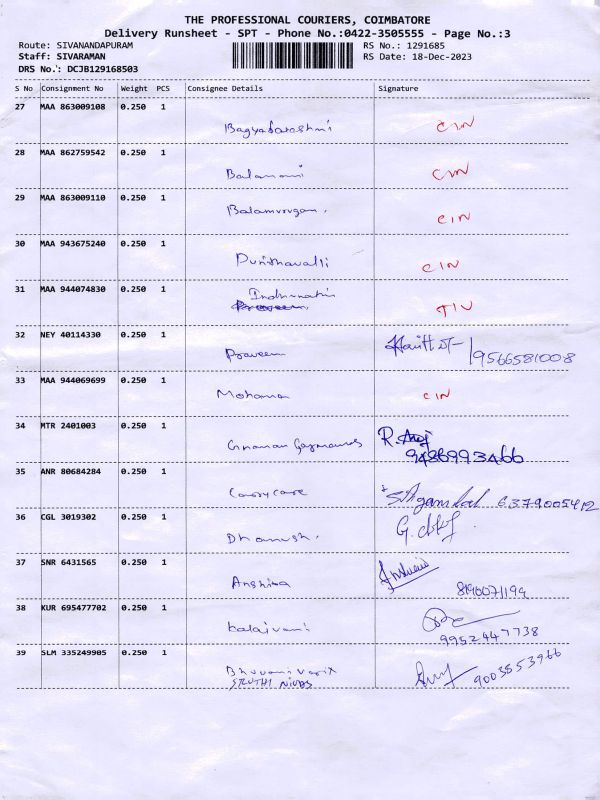 THE PROFESSIONAL COURIERS, COIMBATORE
Delivery Runsheet - SPT - Phone No.:0422-3505555 - Page No.:3
Route: SIVANANDAPURAM RS No.: 1291685
Staff: SIVARAMAN RS Date: 18-Dec-2023
DRS No.: DCJB129168503
S No Consignment No Weight PCS Consignee Details Signature
27 MAA 863009108 0.250 1
CIN
28 MAA 862759542 0.250 1
Balamani CIN
29 MAA 863009110 0.250 1
Balamurugan. CIN
30 MAA 943675240 0.250 1
Punithavalli CIN
31 MAA 944074830 0.250 1
Indhumathi
Praveen
32 NEY 40114330 0.250 1
Praveen 9566581008
33 MAA 944069699 0.250 1
Mohana CIN
34 MTR 2401003 0.250 1
35 ANR 80684284 0.250 1
6379005412
36 CGL 3019302 0.250 1
Dhanush.
37 SNR 6431565 0.250 1
Anshika
38 KUR 695477702 0.250 1
Kalaivani
9952447738
39 SLM 335249905 0.250 1
9003553966
SRUTHI NIVAS